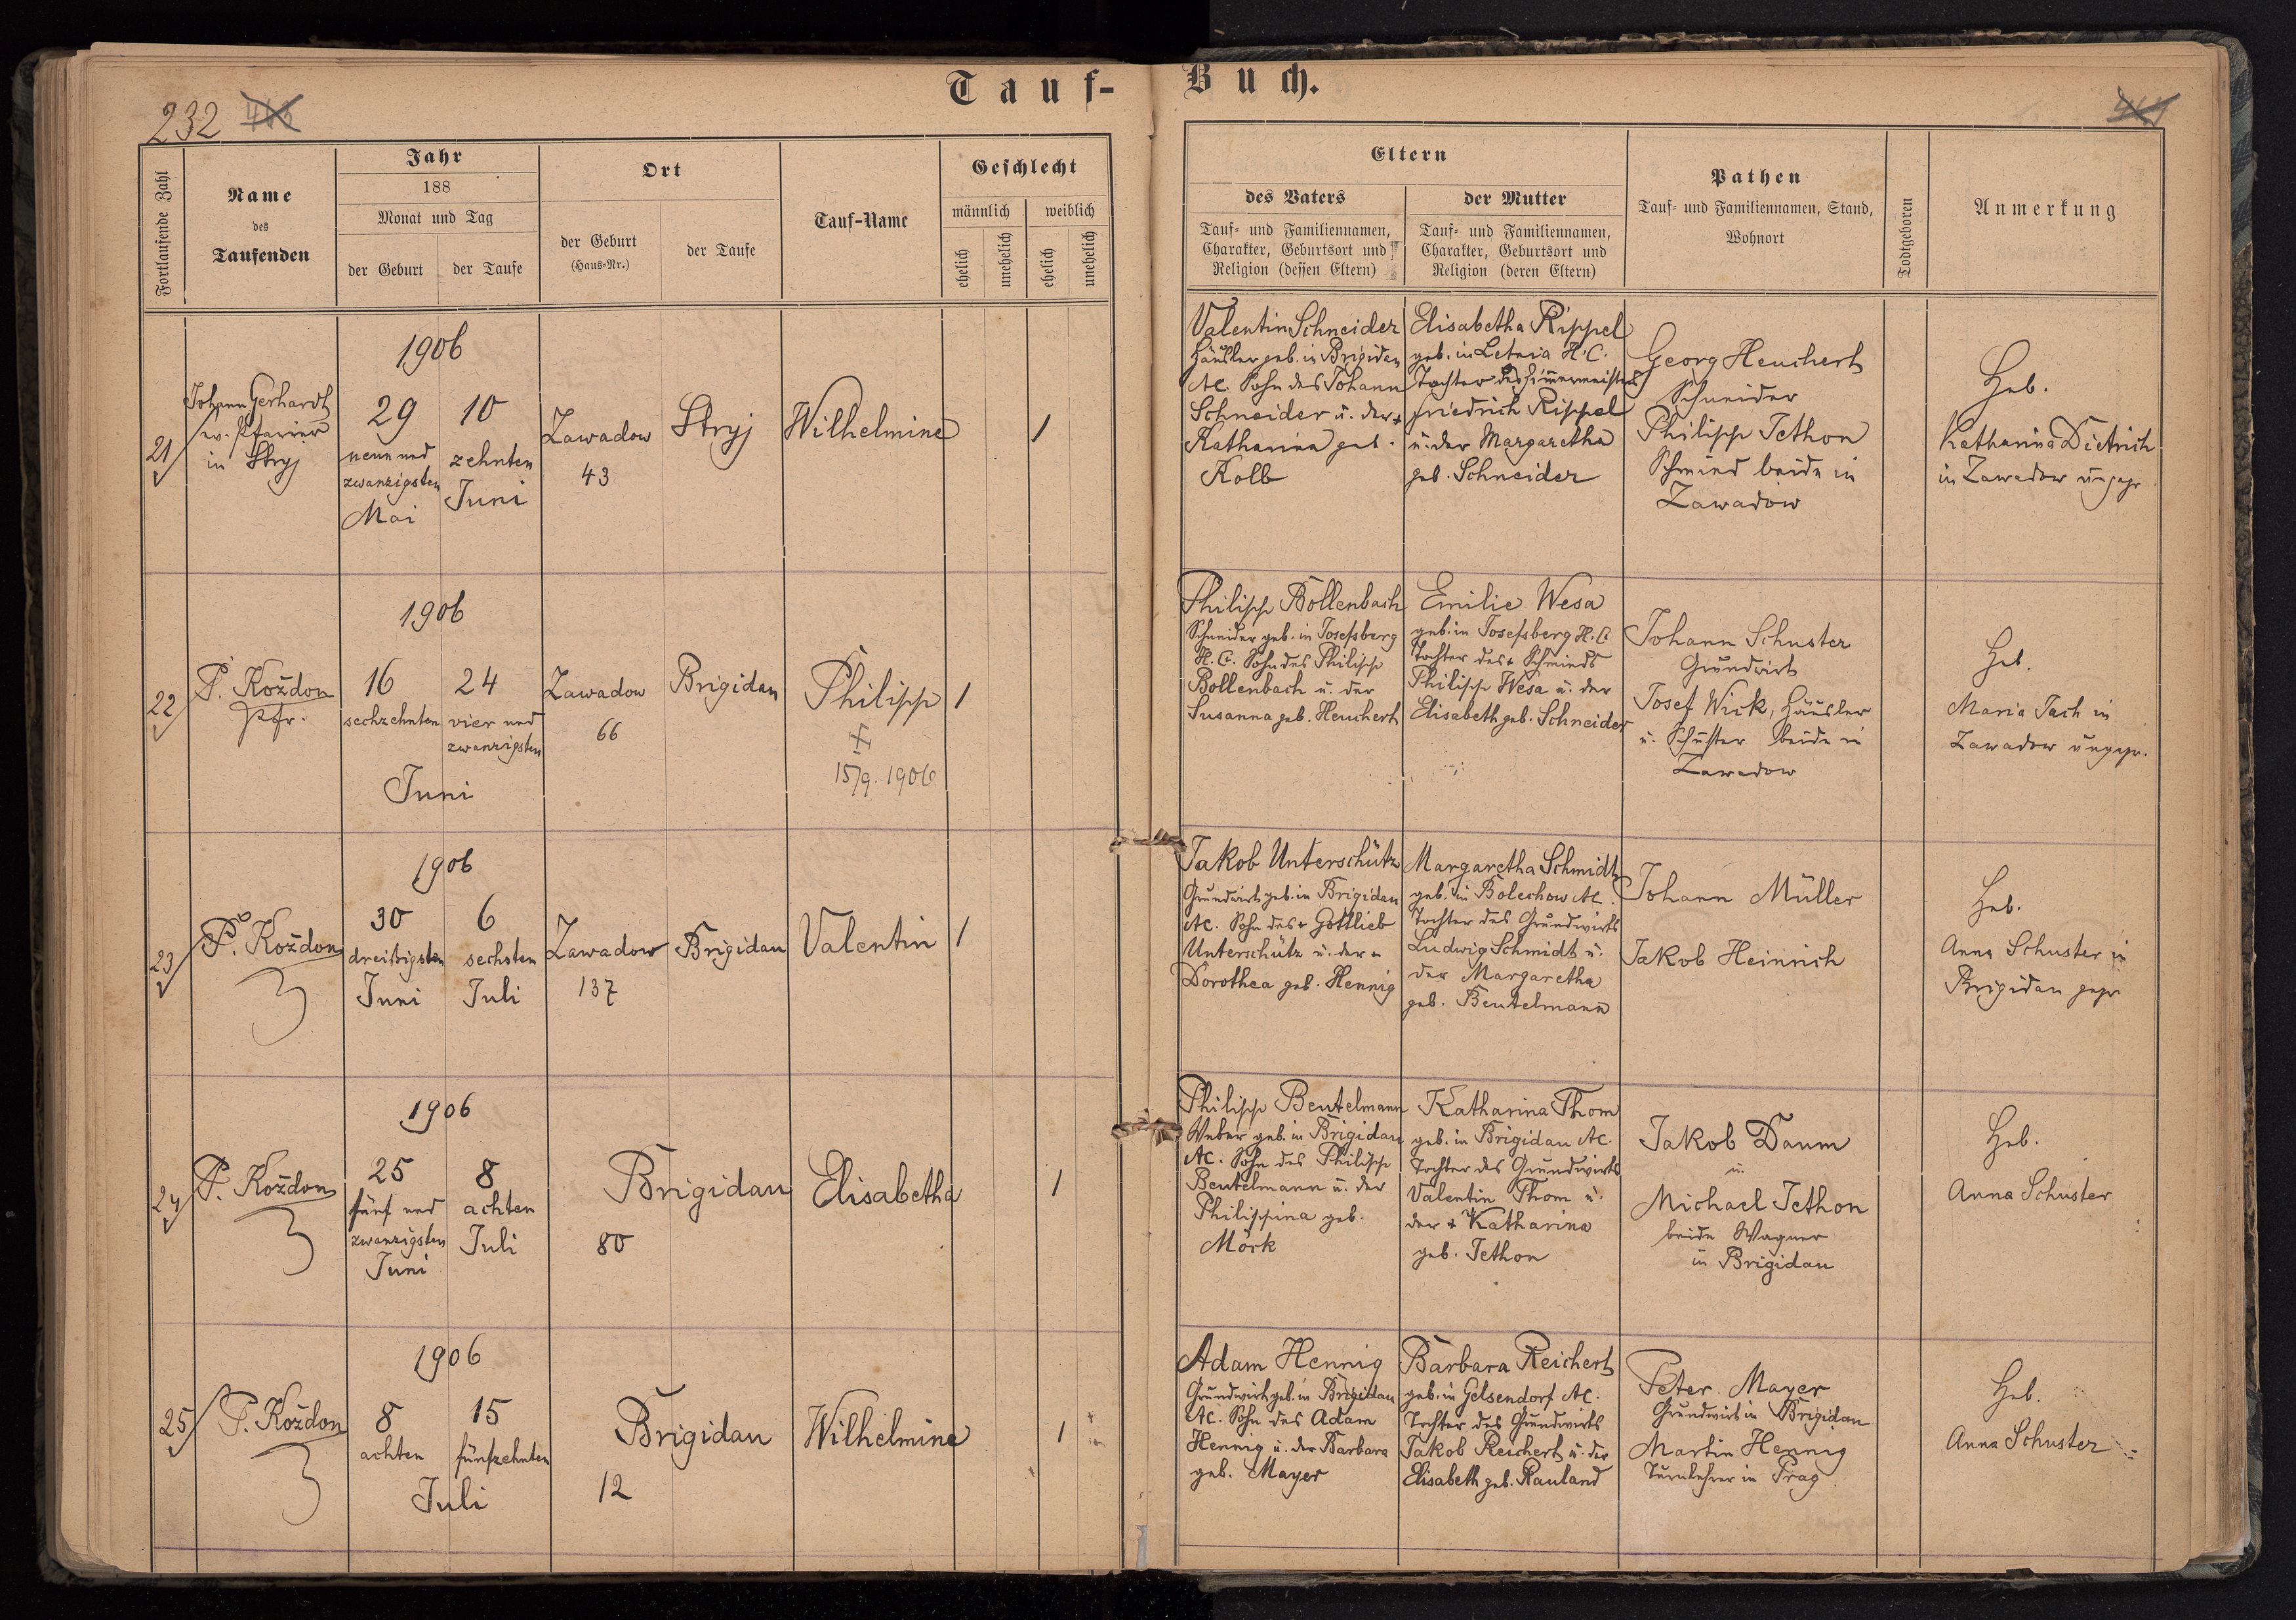 Tauf-Buch.
232
Fortlaufende Zahl
Name
des
Taufenden
Jahr
188
Monat und Tag
der Geburt
der Taufe
Ort
der Geburt
(Haus-Nr.)
der Taufe
Tauf-Name
Geschlecht
männlich
weiblich
ehelich
unehelich
ehelich
unehelich
Eltern
des Vaters
Tauf- und Familiennamen,
Charakter, Geburtsort und
Religion (dessen Eltern)
der Mutter
Tauf- und Familiennamen,
Charakter, Geburtsort und
Religion (deren Eltern)
Pathen
Tauf- und Familiennamen, Stand,
Wohnort
Todtgeboren
Anmerkung
21
Johann Gerhardt
ev. Pfarrer
in Stryj
1906
29
neun und
zwanzigsten
Mai
10
zehnten
Juni
Zawadow
43
Stryj
Wilhelmine
1
Valentin Schneider
Häusler geb. in Brigidau
AC. Sohn des Johann
Schneider u. der +
Katharina geb.
Kolb
Elisabetha Rippel
geb. in Letnia H.C.
Tochter des Zimmermeisters
Friedrich Rippel
u. der Margaretha
geb. Schneider
Georg Heuchert
Schneider
Philipp Jethon
Schmied beide in
Zawadow
Heb.
Katharina Dietrich
in Zawadow ungepr
22
P. Koždon
Pfr.
1906
16
sechzehnten
24
vier und
zwanzigsten
Juni
Zawadow
66
Brigidau
Philipp
15/9. 1906
1
Philipp Bollenbach
Schneider geb. in Josefsberg
H.C. Sohn des Philipp
Bollenbach u. der
Susanna geb. Heuchert
Emilie Wesa
geb. in Josefsberg H.C
Tochter des + Schmieds
Philipp Wesa u. der
Elisabeth geb. Schneider
Johann Schuster
Grundwirt
Josef Wick, Häusler
u. Schuster beide in
Zawadow
Heb.
Maria Tach in
Zawadow ungepr.
23
P. Koždon
1906
30
dreißigsten
Juni
6
sechsten
Juli
Zawadow
137
Brigidau
Valentin
1
Jakob Unterschütz
Grundwirt geb. in Brigidau
AC. Sohn des + Gottlieb
Unterschütz u. der
Dorothea geb. Hennig
Margaretha Schmidt
geb. in Bolechow AC.
Tochter des Grundwirts
Ludwig Schmidt u.
der Margaretha
geb. Beutelmann
Johann Müller
Jakob Heinrich
Heb.
Anna Schuster in
Brigidau gepr
24
P. Koždon
1906
25
fünf und
zwanzigsten
Juni
8
achten
Juli
Brigidau
80
Elisabetha
1
Philipp Beutelmann
Weber geb. in Brigidau
AC. Sohn des Philipp
Beutelmann u. der
Philippina geb.
Mörk
Katharina Thom
geb. in Brigidau AC.
Tochter des Grundwirts
Valentin Thom u.
der + Katharina
geb. Jethon
Jakob Daum
u.
Michael Jethon
beide Wagner
in Brigidau
Heb.
Anna Schuster
25
P. Koždon
1906
8
achten
15
fünfzehnten
Juli
Brigidau
12
Wilhelmine
1
Adam Hennig
Grundwirt geb. in Brigidau
AC. Sohn des Adam
Hennig u. der Barbara
geb. Mayer
Barbara Reichert
geb. in Gelsendorf AC.
Tochter des Grundwirts
Jakob Reichert u. der
Elisabeth geb. Rauland
Peter Mayer
Grundwirt in Brigidau
Martin Hennig
Turnlehrer in Prag
Heb.
Anna Schuster